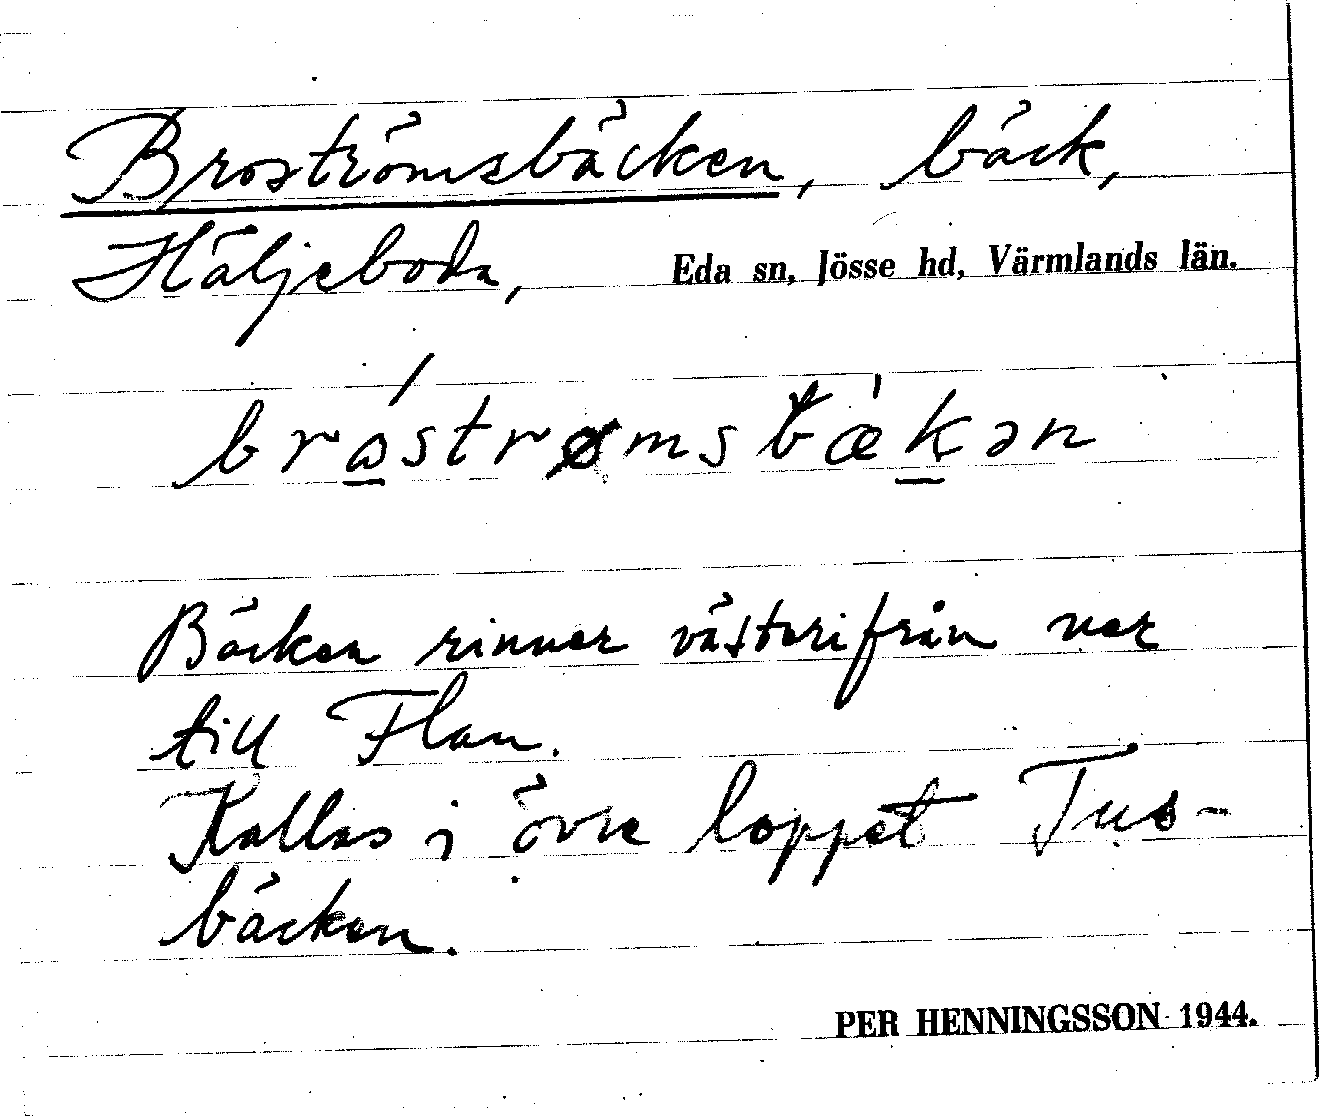 Broströmsbäcken, bäck,
Häljeboda, Eda sn, Jösse hd, Värmlands län.
bråstrømsbækən
Bäcken rinner västerifrån ner
till Flan.
Kallas i övre loppet Tus-
bäcken.
PER HENNINGSSON 1944.